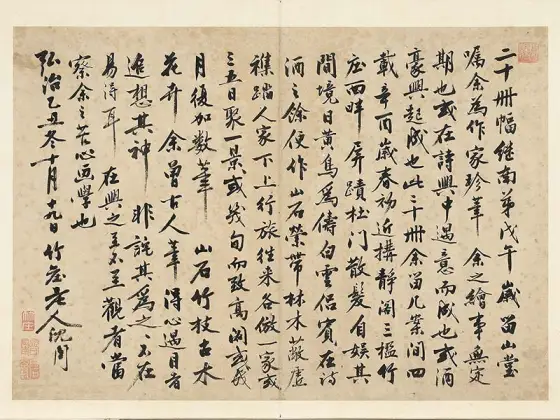 二十冊幅继南弟戊午歲留山堂
囑余為作家珍筆 余之繪事無定
期也或在詩興中遇意而成也或酒
豪興起成也此二十冊余留几案間四
載辛酉歲春初近搆靜阁三楹竹
庄西畔屏蹟杜門散髮自娛其
間境日黄鳥為儔白雲侣賓在詩
酒之餘便作山石縈帶林木蔽廬
樵踏人家下上行旅往來各倣一家或
三五日聚一景或幾旬而致高闲或幾
月復加數筆 山石竹枝古木
花卉余曾古人筆得心遇目者
追想其神非說其為之之不在
易得耳在興之至不至觀者當
察余之苦心画學也
弘治乙丑冬十月十九日竹庄老人沈周